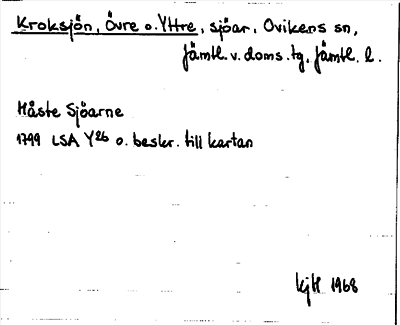 Kroksjön, Övre o. Yttre, sjöar, Ovikens sn,
Jämtl. v. doms. tg, Jämtl. l.
Håste Sjöarne
1799 LSA Y26 o. beskr. till kartan
KjH 1968